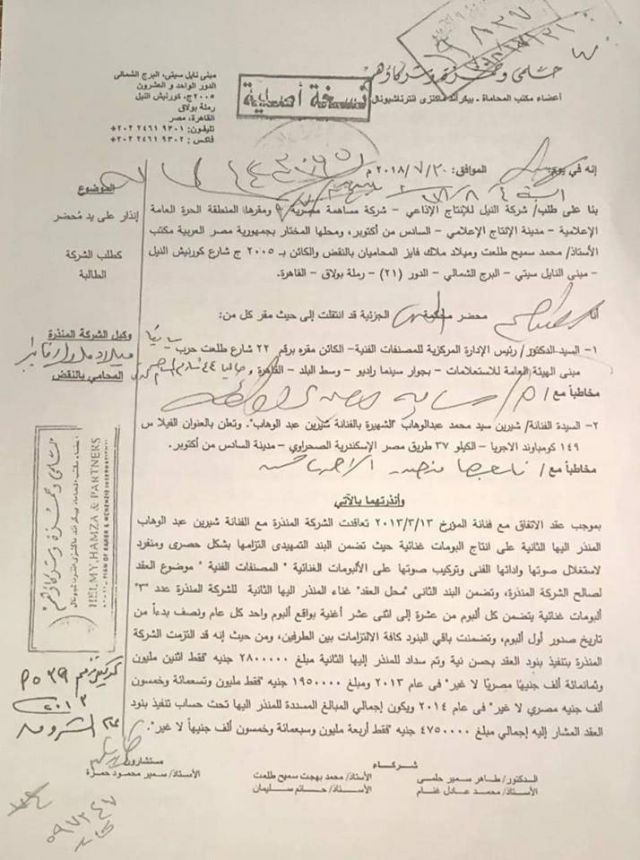 حلمى وحمزة وشركاؤهم
أعضاء مكتب المحاماة - بيكر أند ماكنزى انترناشيونال
مبنى نايل سيتى، البرج الشمالى
الدور الواحد و العشرون
٢٠٠٥ج، كورنيش النيل
رملة بولاق
القاهرة، مصر
تليفون: ٩٣٠١ ٢٤٦١ ٢٠٢+
فاكس : ٩٣٠٢ ٢٤٦١ ٢٠٢+
نسخة أصلية
إنه في يوم الموافق: ٢٠١٨/٧/٣٠ م
الموضوع
إنذار على يد مُحضر
كطلب الشركة
الطالبة
بنا على طلب/ شركة النيل للإنتاج الإذاعي – شركة مساهمة مصرية – ومقرها: المنطقة الحرة العامة
الإعلامية – مدينة الإنتاج الإعلامي – السادس من أكتوبر، ومحلها المختار بجمهورية مصر العربية مكتب
الأستاذ/ محمد سميح طلعت وميلاد ملاك فايز المحاميان بالنقض والكائن بـ ٢٠٠٥ ج شارع كورنيش النيل
– مبنى النايل سيتي – البرج الشمالي – الدور (٢١) – رملة بولاق – القاهرة.
أنا محضر محكمة الجزئية قد انتقلت إلى حيث مقر كل من:
وكيل الشركة المنذرة
المحامي بالنقض
١- السيد الدكتور/ رئيس الإدارة المركزية للمصنفات الفنية– الكائن مقره برقم ٢٢ شارع طلعت حرب
مبنى الهيئة العامة للاستعلامات – بجوار سينما راديو – وسط البلد – القاهرة
مخاطباً مع /
٢- السيدة الفنانة/ شيرين سيد محمد عبدالوهاب "الشهيرة بالفنانة شيرين عبد الوهاب". وتعلن بالعنوان الفيلا س
١٤٩ كومباوند الاجريا – الكيلو ٣٧ طريق مصر الإسكندرية الصحراوي – مدينة السادس من أكتوبر.
مخاطباً مع /
وأنذرتهما بالآتي
بموجب عقد الاتفاق مع فنانة المؤرخ ٢٠١٣/٣/١٣ تعاقدت الشركة المنذرة مع الفنانة شيرين عبد الوهاب
المنذر اليها الثانية على انتاج البومات غنائية حيث تضمن البند التمهيدى التزامها بشكل حصرى ومنفرد
لاستغلال صوتها واداتها الفنى وتركيب صوتها على الألبومات الغنائية " المصنفات الفنية " موضوع العقد
لصالح الشركة المنذرة، وتضمن البند الثانى "محل العقد" غناء المنذر اليها الثانية للشركة المنذرة عدد "٣"
ألبومات غنائية يتضمن كل ألبوم من عشرة إلى اثنى عشر أغنية بواقع ألبوم واحد كل عام ونصف بدءاً من
تاريخ صدور أول ألبوم، وتضمنت باقي البنود كافة الالتزامات بين الطرفين، ومن حيث إنه قد التزمت الشركة
المنذرة بتنفيذ بنود العقد بحسن نية وتم سداد للمنذر إليها الثانية مبلغ ٢٨٠٠٠٠٠ جنيه "فقط اثنين مليون
وثمانمائة ألف جنيهاً مصريًا لا غير" فى عام ٢٠١٣ ومبلغ ١٩٥٠٠٠٠ جنيه "فقط مليون وتسعمائة وخمسون
ألف جنيه مصري لا غير" فى عام ٢٠١٤ ويكون إجمالي المبالغ المسددة للمنذر اليها تحت حساب تنفيذ بنود
العقد المشار إليه إجمالي مبلغ ٤٧٥٠٠٠٠ جنيه "فقط أربعة مليون وسبعمائة وخمسون ألف جنيهاً لا غير".
حلمى وحمزة وشركاؤهم
HELMY, HAMZA & PARTNERS
شركـــاء
الدكتور/ طاهر سمير حلمى
الأستاذ/ محمد عادل غنام
الأستاذ/ محمد بهجت سميح طلعت
الأستاذ/ حاتم سليمان
مستشارون
الأستاذ/ سمير محمود حمزة